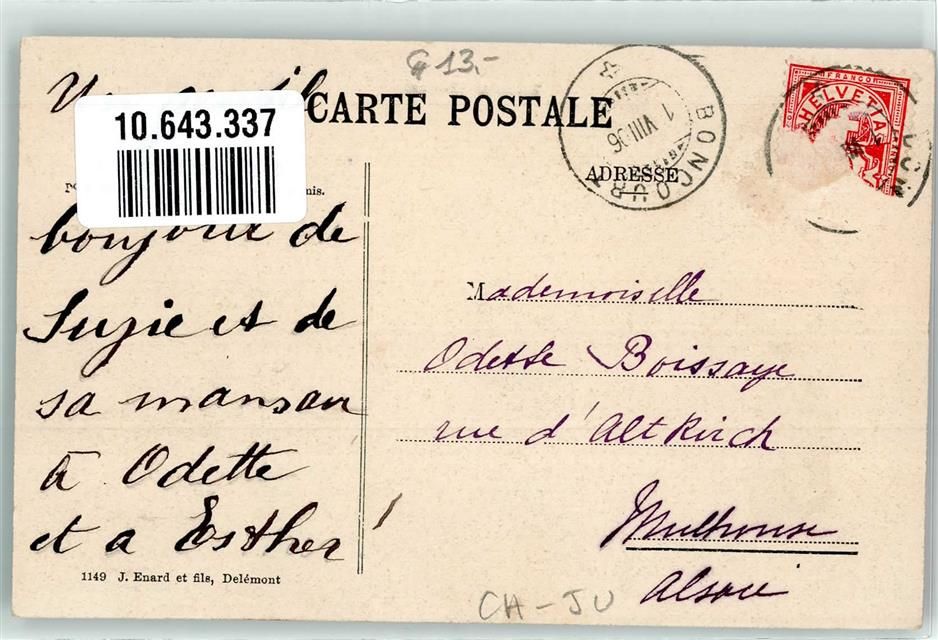 G 13.-
CARTE POSTALE
10.643.337
nis.
ADRESSE
BONCOURT
1 VIII 06
FRANCO
HELVETIA
bonjour de
Suzie et de
sa maman
à Odette
et a Esther
1149 J. Enard et fils, Delémont
Mademoiselle
Odette Boissaye
rue d'Altkirch
Mulhouse
Alsace
CH-JU